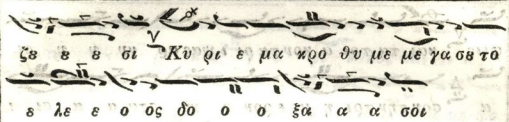 ζε ε ε σι Κυ ρι ε μα κρο θυ με με γα σȣ το
ε λε ε ο ος δο ο ο ξα α α σοι